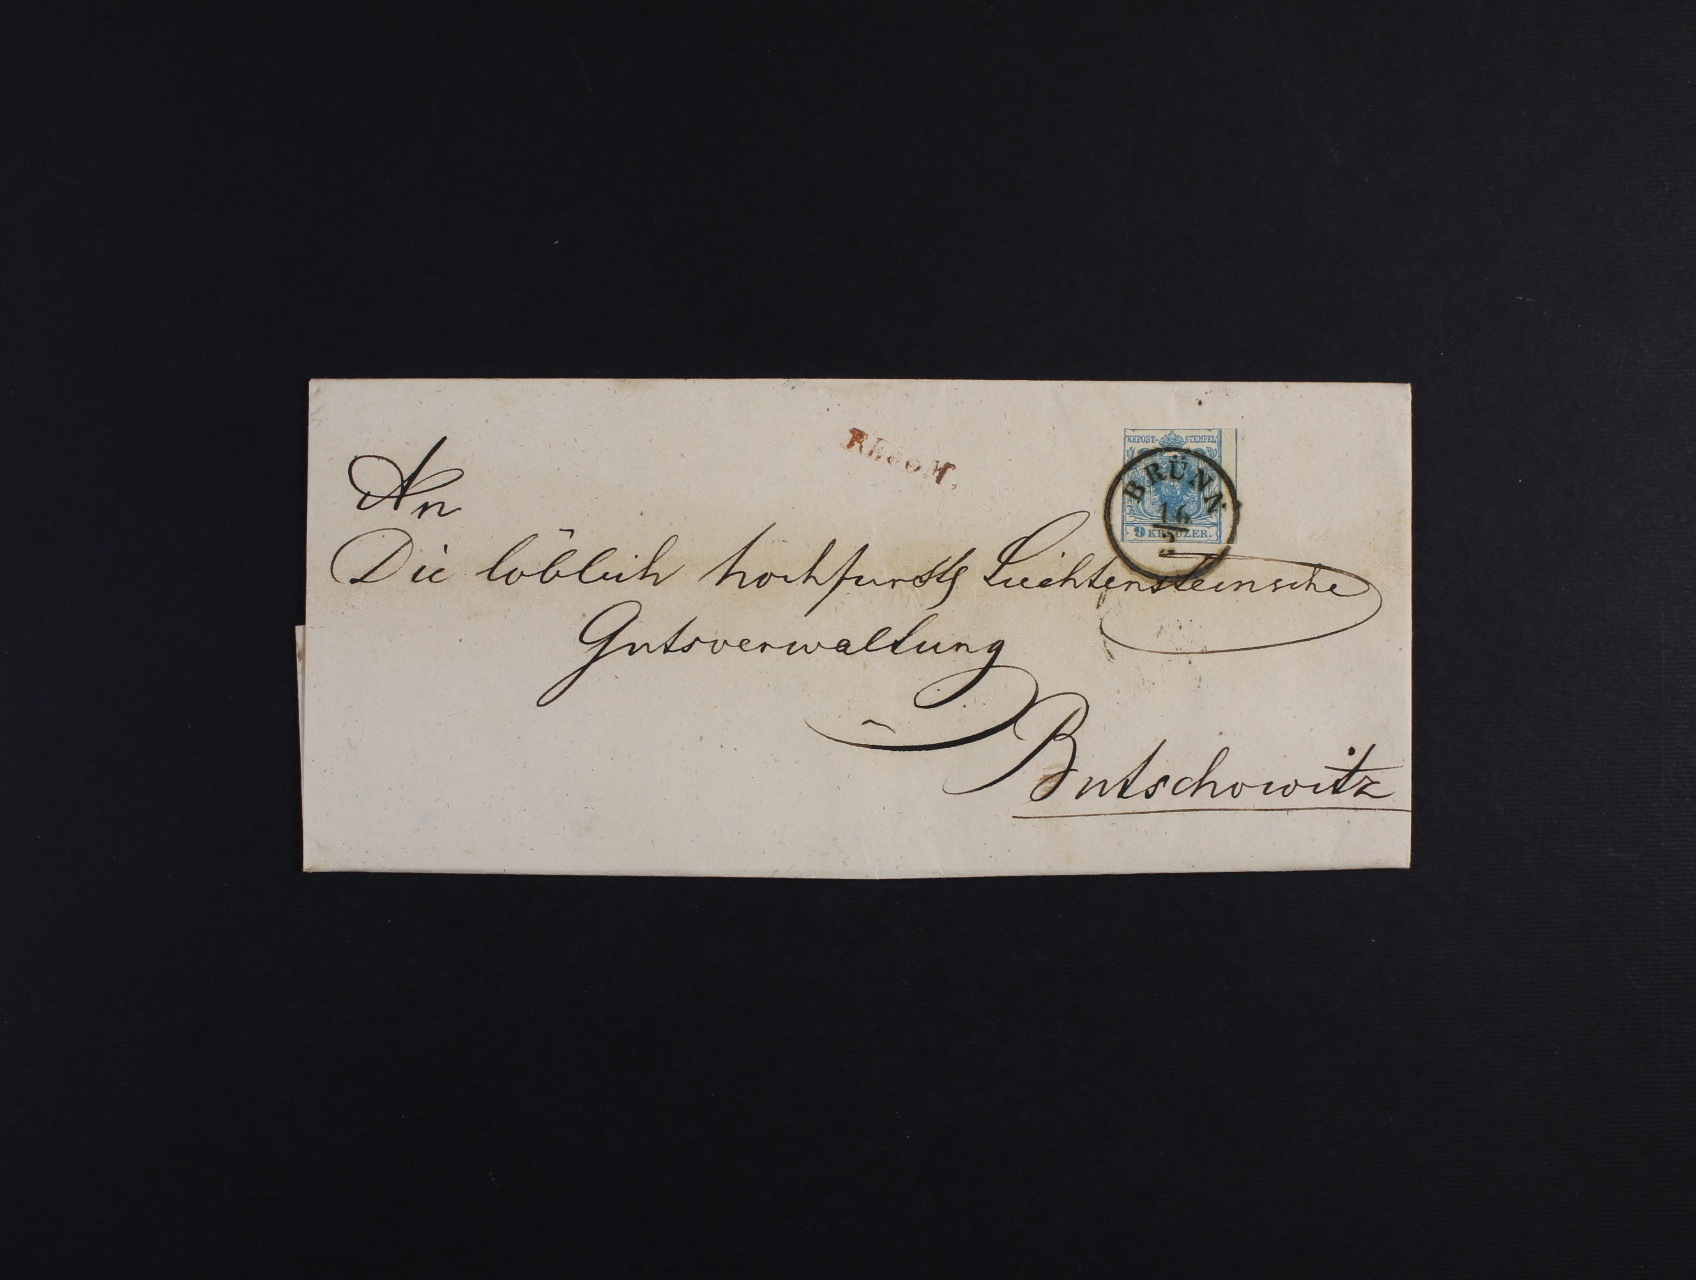 RECOM.
KKPOST-STEMPEL
BRÜNN
16
9 KREUZER.
An
Die löblich hochfürstl Liechtensteinsche
Gutsverwaltung
Butschowitz